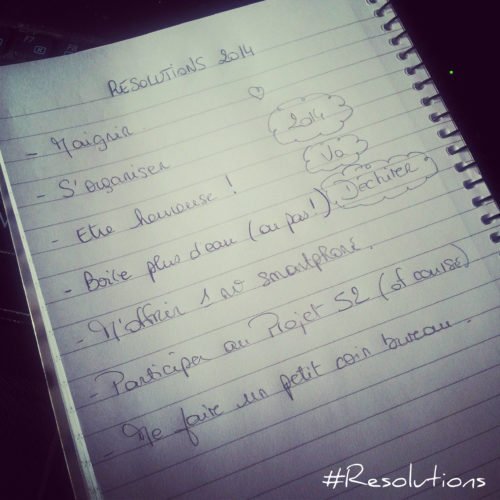 RESOLUTIONS 2014
- Maigrir.
- S'organiser
- Etre heureuse !
- Boire plus d'eau (ou pas !)
- M'offrir 1 nv smartphone.
- Participer au Projet 52 (of course)
- Me faire un petit coin bureau.
2014
Va
Déchirer
#Resolutions